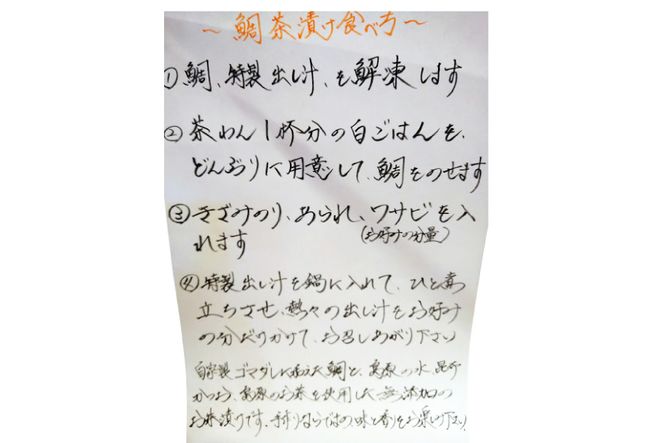 ～鯛茶漬け食べ方～
①鯛、特製出し汁、を解凍します
②茶わん1杯分の白ごはんを、
どんぶりに用意して、鯛をのせます
③きざみのり、あられ、ワサビを入
(お好みの分量)
れます
④特製出し汁を鍋に入れて、ひと煮
立ちさせ、熱々の出し汁をお好み
の分だけかけて、お召しあがり下さい
自家製ゴマダレに漬けた鯛と、島原の水、昆布
かつお、島原のお茶を使用した無添加の
お茶漬けです。手作りならではの味と香りをお楽しみ下さい